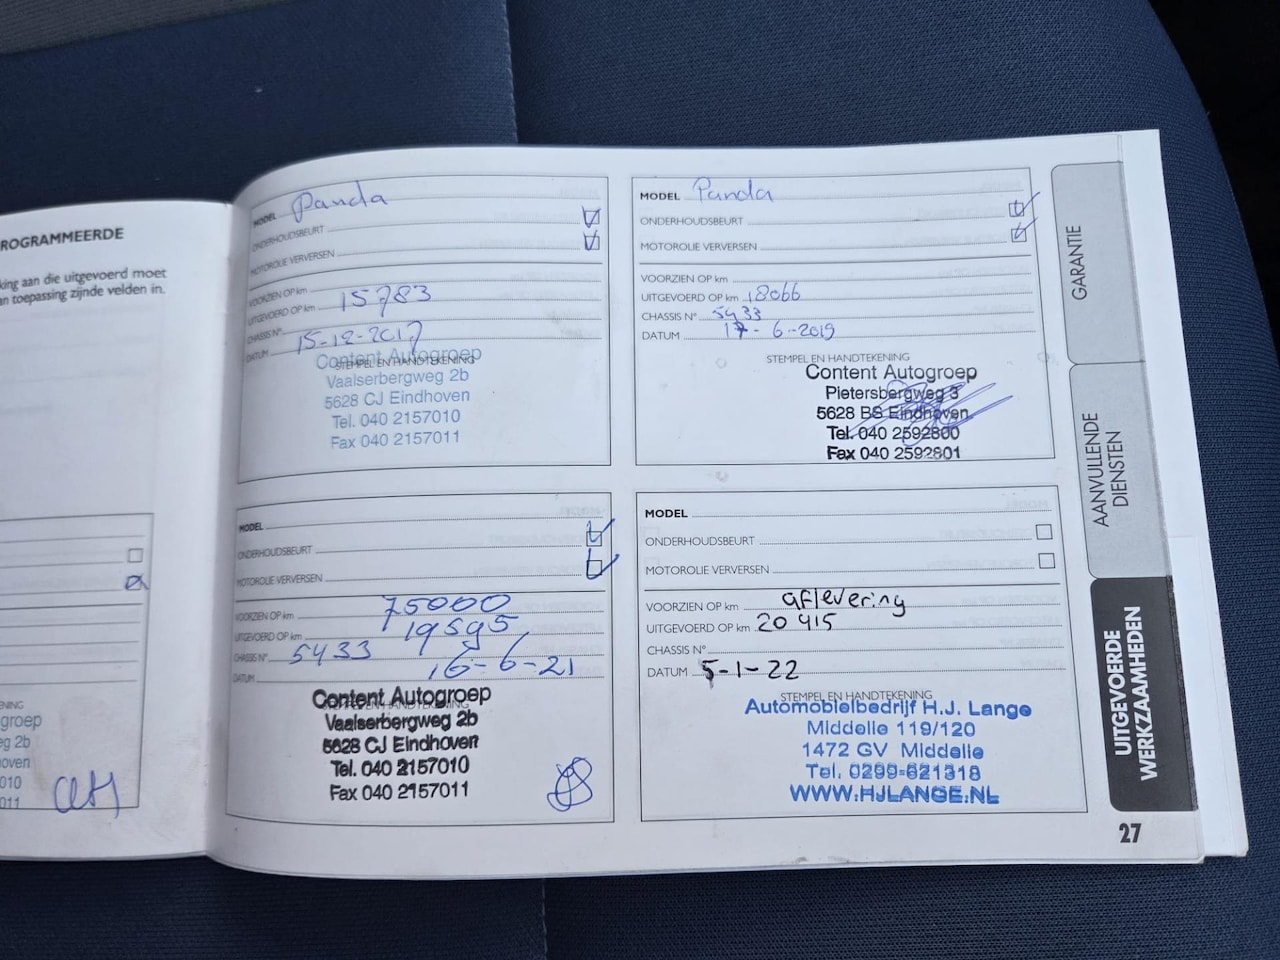 ROGRAMMEERDE
king aan die uitgevoerd moet
an toepassing zijnde velden in.
groep
g 2b
hoven
010
011
MODEL Panda
ONDERHOUDSBEURT
MOTOROLIE VERVERSEN
VOORZIEN OP km
UITGEVOERD OP km 15783
CHASSIS N°
DATUM 15-12-2017
STEMPEL EN HANDTEKENING
Content Autogroep
Vaalserbergweg 2b
5628 CJ Eindhoven
Tel. 040 2157010
Fax 040 2157011
MODEL Panda
ONDERHOUDSBEURT
MOTOROLIE VERVERSEN
VOORZIEN OP km
UITGEVOERD OP km 18066
CHASSIS N° 5433
DATUM 17-6-2019
STEMPEL EN HANDTEKENING
Content Autogroep
Pietersbergweg 3
5628 BS Eindhoven
Tel. 040 2592800
Fax 040 2592801
MODEL
ONDERHOUDSBEURT
MOTOROLIE VERVERSEN
VOORZIEN OP km 75000
UITGEVOERD OP km 19595
CHASSIS N° 5433
DATUM 16-6-21
Content Autogroep
Vaalserbergweg 2b
5628 CJ Eindhoven
Tel. 040 2157010
Fax 040 2157011
MODEL
ONDERHOUDSBEURT
MOTOROLIE VERVERSEN
VOORZIEN OP km aflevering
UITGEVOERD OP km 20 415
CHASSIS N°
DATUM 5-1-22
STEMPEL EN HANDTEKENING
Automobielbedrijf H.J. Lange
Middelie 119/120
1472 GV Middelie
Tel. 0299-621318
WWW.HJLANGE.NL
GARANTIE
AANVULLENDE
DIENSTEN
UITGEVOERDE
WERKZAAMHEDEN
27